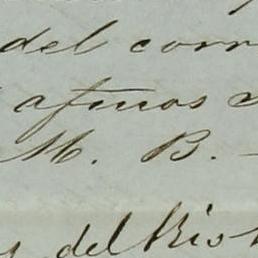 del corr
afmos
M. B. -
del Rio